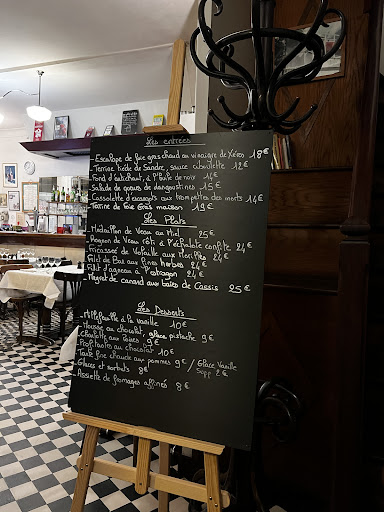 Les entrées
- Escalope de foie gras chaud au vinaigre de Xérès 18€
- Terrine tiède de Sandre, sauce ciboulette 12€
- Fond d'artichaut, à l'huile de noix 14€
- Salade de queues de langoustines 15€
- Cassolette d'escargots aux trompettes des morts 14€
- Terrine de foie Gras maison 19€
Les Plats
- Médaillon de Veau au Miel 25€
- Rognon de Veau rôti à l'échalote confite 24€
- Fricassée de Volaille aux Morilles 24€
- Filet de Bar aux fines herbes 24€
- Filet d'agneau à l'estragon 24€
- Magret de canard aux baies de Cassis 25€
Les Desserts
- Millefeuille à la vanille 10€
- Mousse au chocolat, glace pistache 9€
- Clafoutis aux poires 9€
- Profiteroles au chocolat 10€
- Tarte fine chaude aux pommes 9€ / Glace Vanille
Supp. 2€
- Glaces et sorbets 8€
- Assiette de fromages affinés 8€